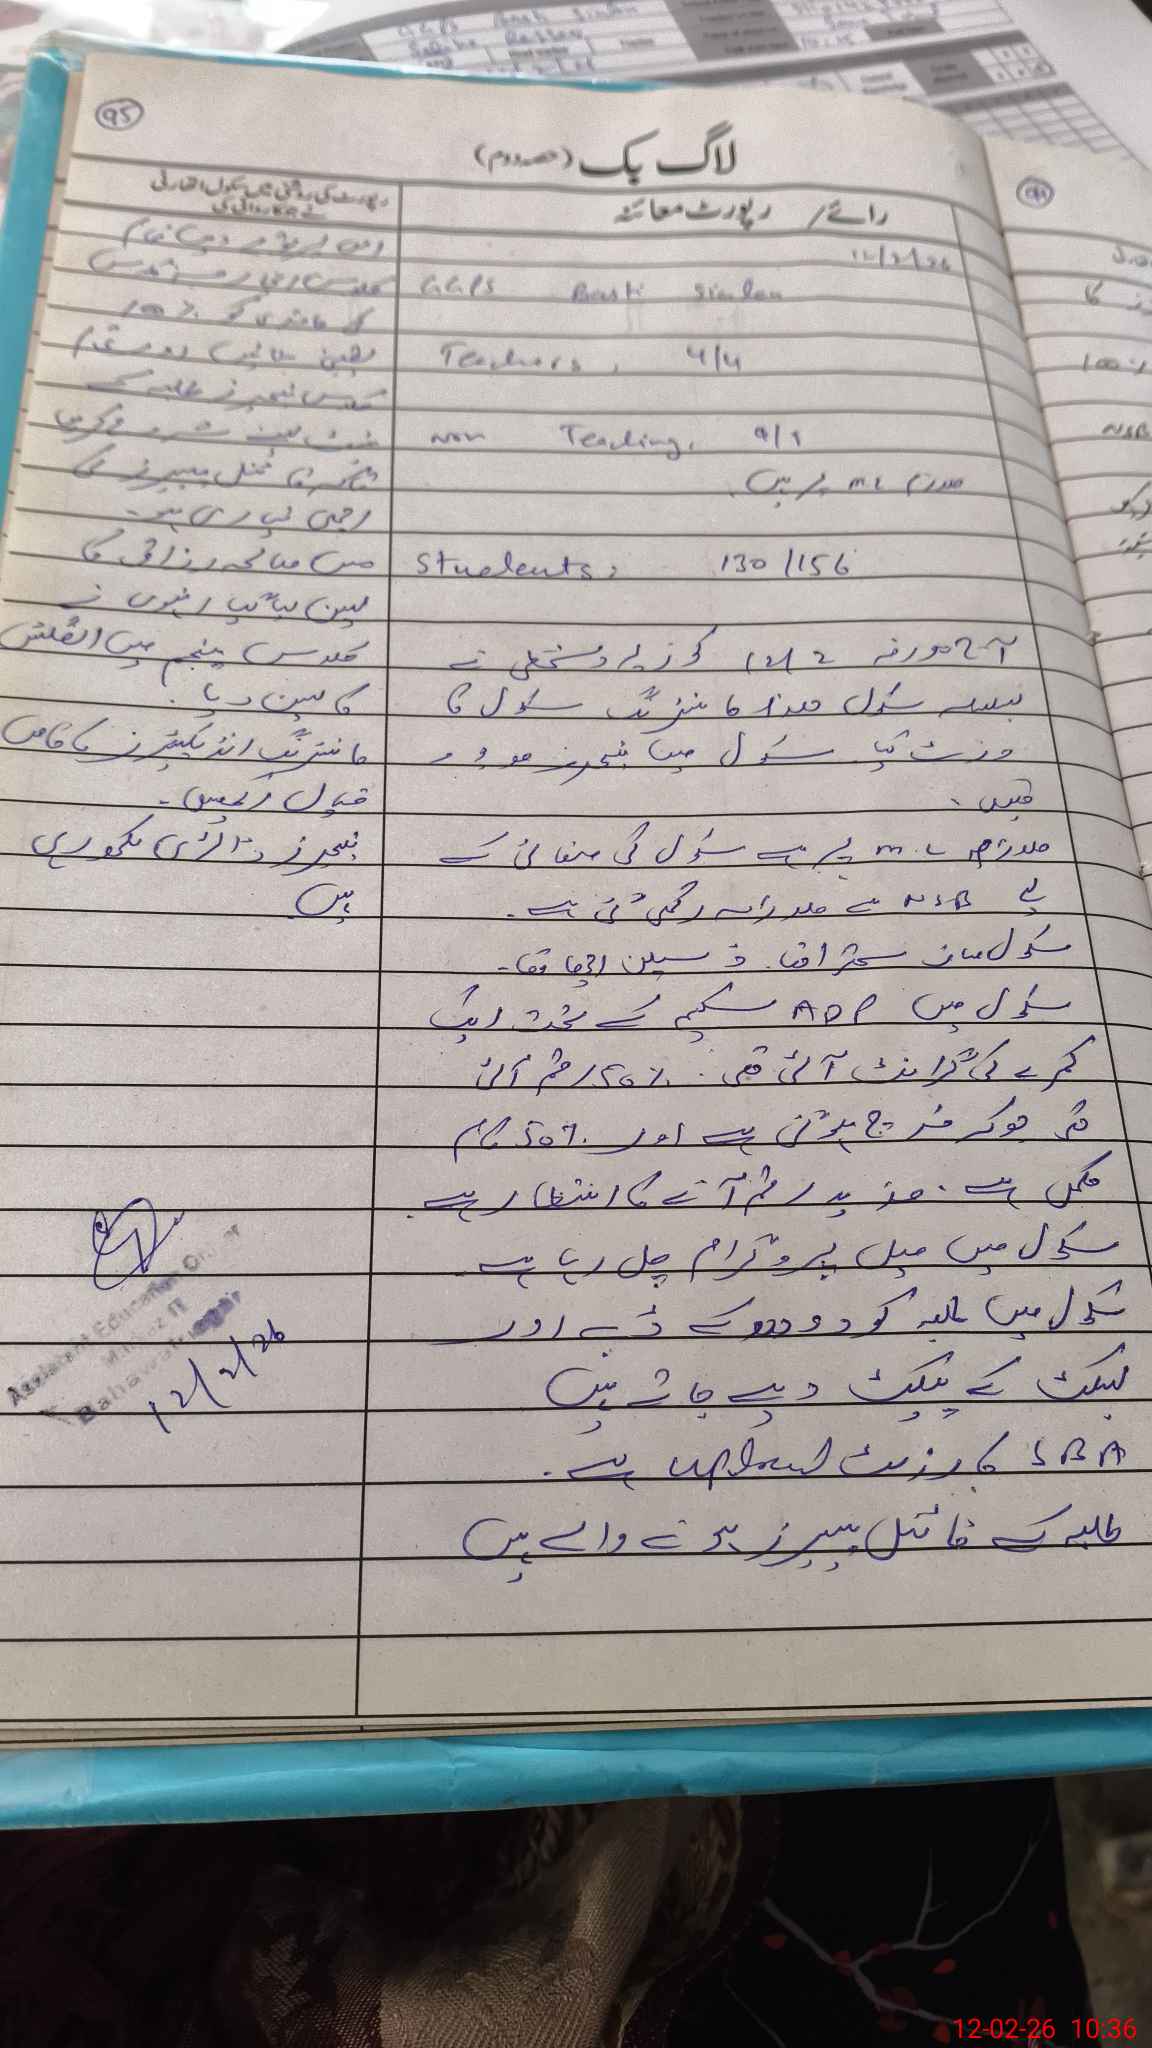 95
لاگ بک (حصہ دوم)
رائے / رپورٹ معائنہ
12/2/26
GGPS Basti Sialan
Teachers, 4/4
Non Teaching,
ملازم ML پر ہیں
Students, 130/156
آج مورخہ 12/2 کو زیر دستخطی نے
بسلسلہ سکول ھذا مانیٹرنگ سکول کا
وزٹ کیا۔ سکول میں ٹیچرز موجود
تھیں۔
ملازم M.L پر ہے سکول کی صفائی کے
لیے NSB سے ملازمہ رکھی گئی ہے۔
سکول صاف ستھرا تھا۔ ڈسپلن اچھا تھا۔
سکول میں ADP سکیم کے تحت ایک
کمرے کی گرانٹ آئی تھی۔ رقم آئی
تھی جو کہ خرچ ہو گئی ہے اور 50% کام
مکمل ہے۔ مزید رقم آنے کا انتظار ہے۔
سکول میں میل پروگرام چل رہا ہے۔
سکول میں طلبہ کو دودھ کے ڈبے اور
بسکٹ کے پیکٹ دیے جاتے ہیں
SBA کا رزلٹ upload ہے۔
طلبہ کے فائنل پیپرز ہونے والے ہیں
رپورٹ کی روشنی میں سکول اتھارٹی
نے جو کاروائی کی
کی حاضری کو 100%
یقینی بنائیں
ٹیچرز طلبہ کے
ٹیسٹ لینے شروع کریں
تاکہ فائنل پیپرز کی
اچھی تیاری ہو۔
مس صالحہ رزاق کا
لیسن لیا گیا انہوں نے
کلاس پنجم میں انگلش
کا لیسن دیا۔
مانیٹرنگ انڈیکیٹرز کا خاص
خیال رکھیں۔
ٹیچرز ڈائری لکھ رہی
ہیں
Assistant Education Officer
Bahawalnagar
12/2/26
12-02-26 10:36